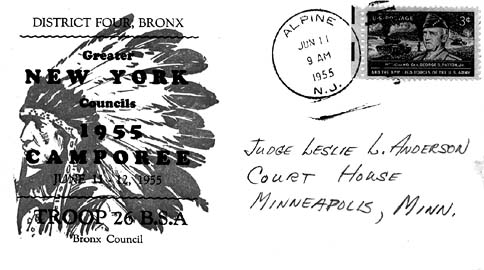 DISTRICT FOUR, BRONX
Greater
NEW YORK
Councils
1955
CAMPOREE
JUNE 11-12, 1955
TROOP 26 B.S.A
Bronx Council
ALPINE
JUN 11
9 AM
1955
N.J.
U.S. POSTAGE 3¢
GEN. GEORGE S. PATTON, JR.
AND THE ARMORED FORCES OF THE U.S. ARMY
JUDGE LESLIE L. ANDERSON
COURT HOUSE
MINNEAPOLIS, MINN.